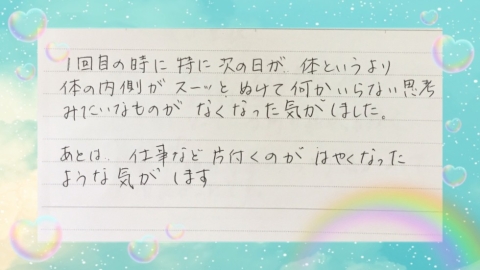 1回目の時に特に次の日が、体というより
体の内側がスーッと、ぬけて何かいらない思考
みたいなものが なくなった気がしました。
あとは、仕事など片付くのが はやくなった
ような気が します